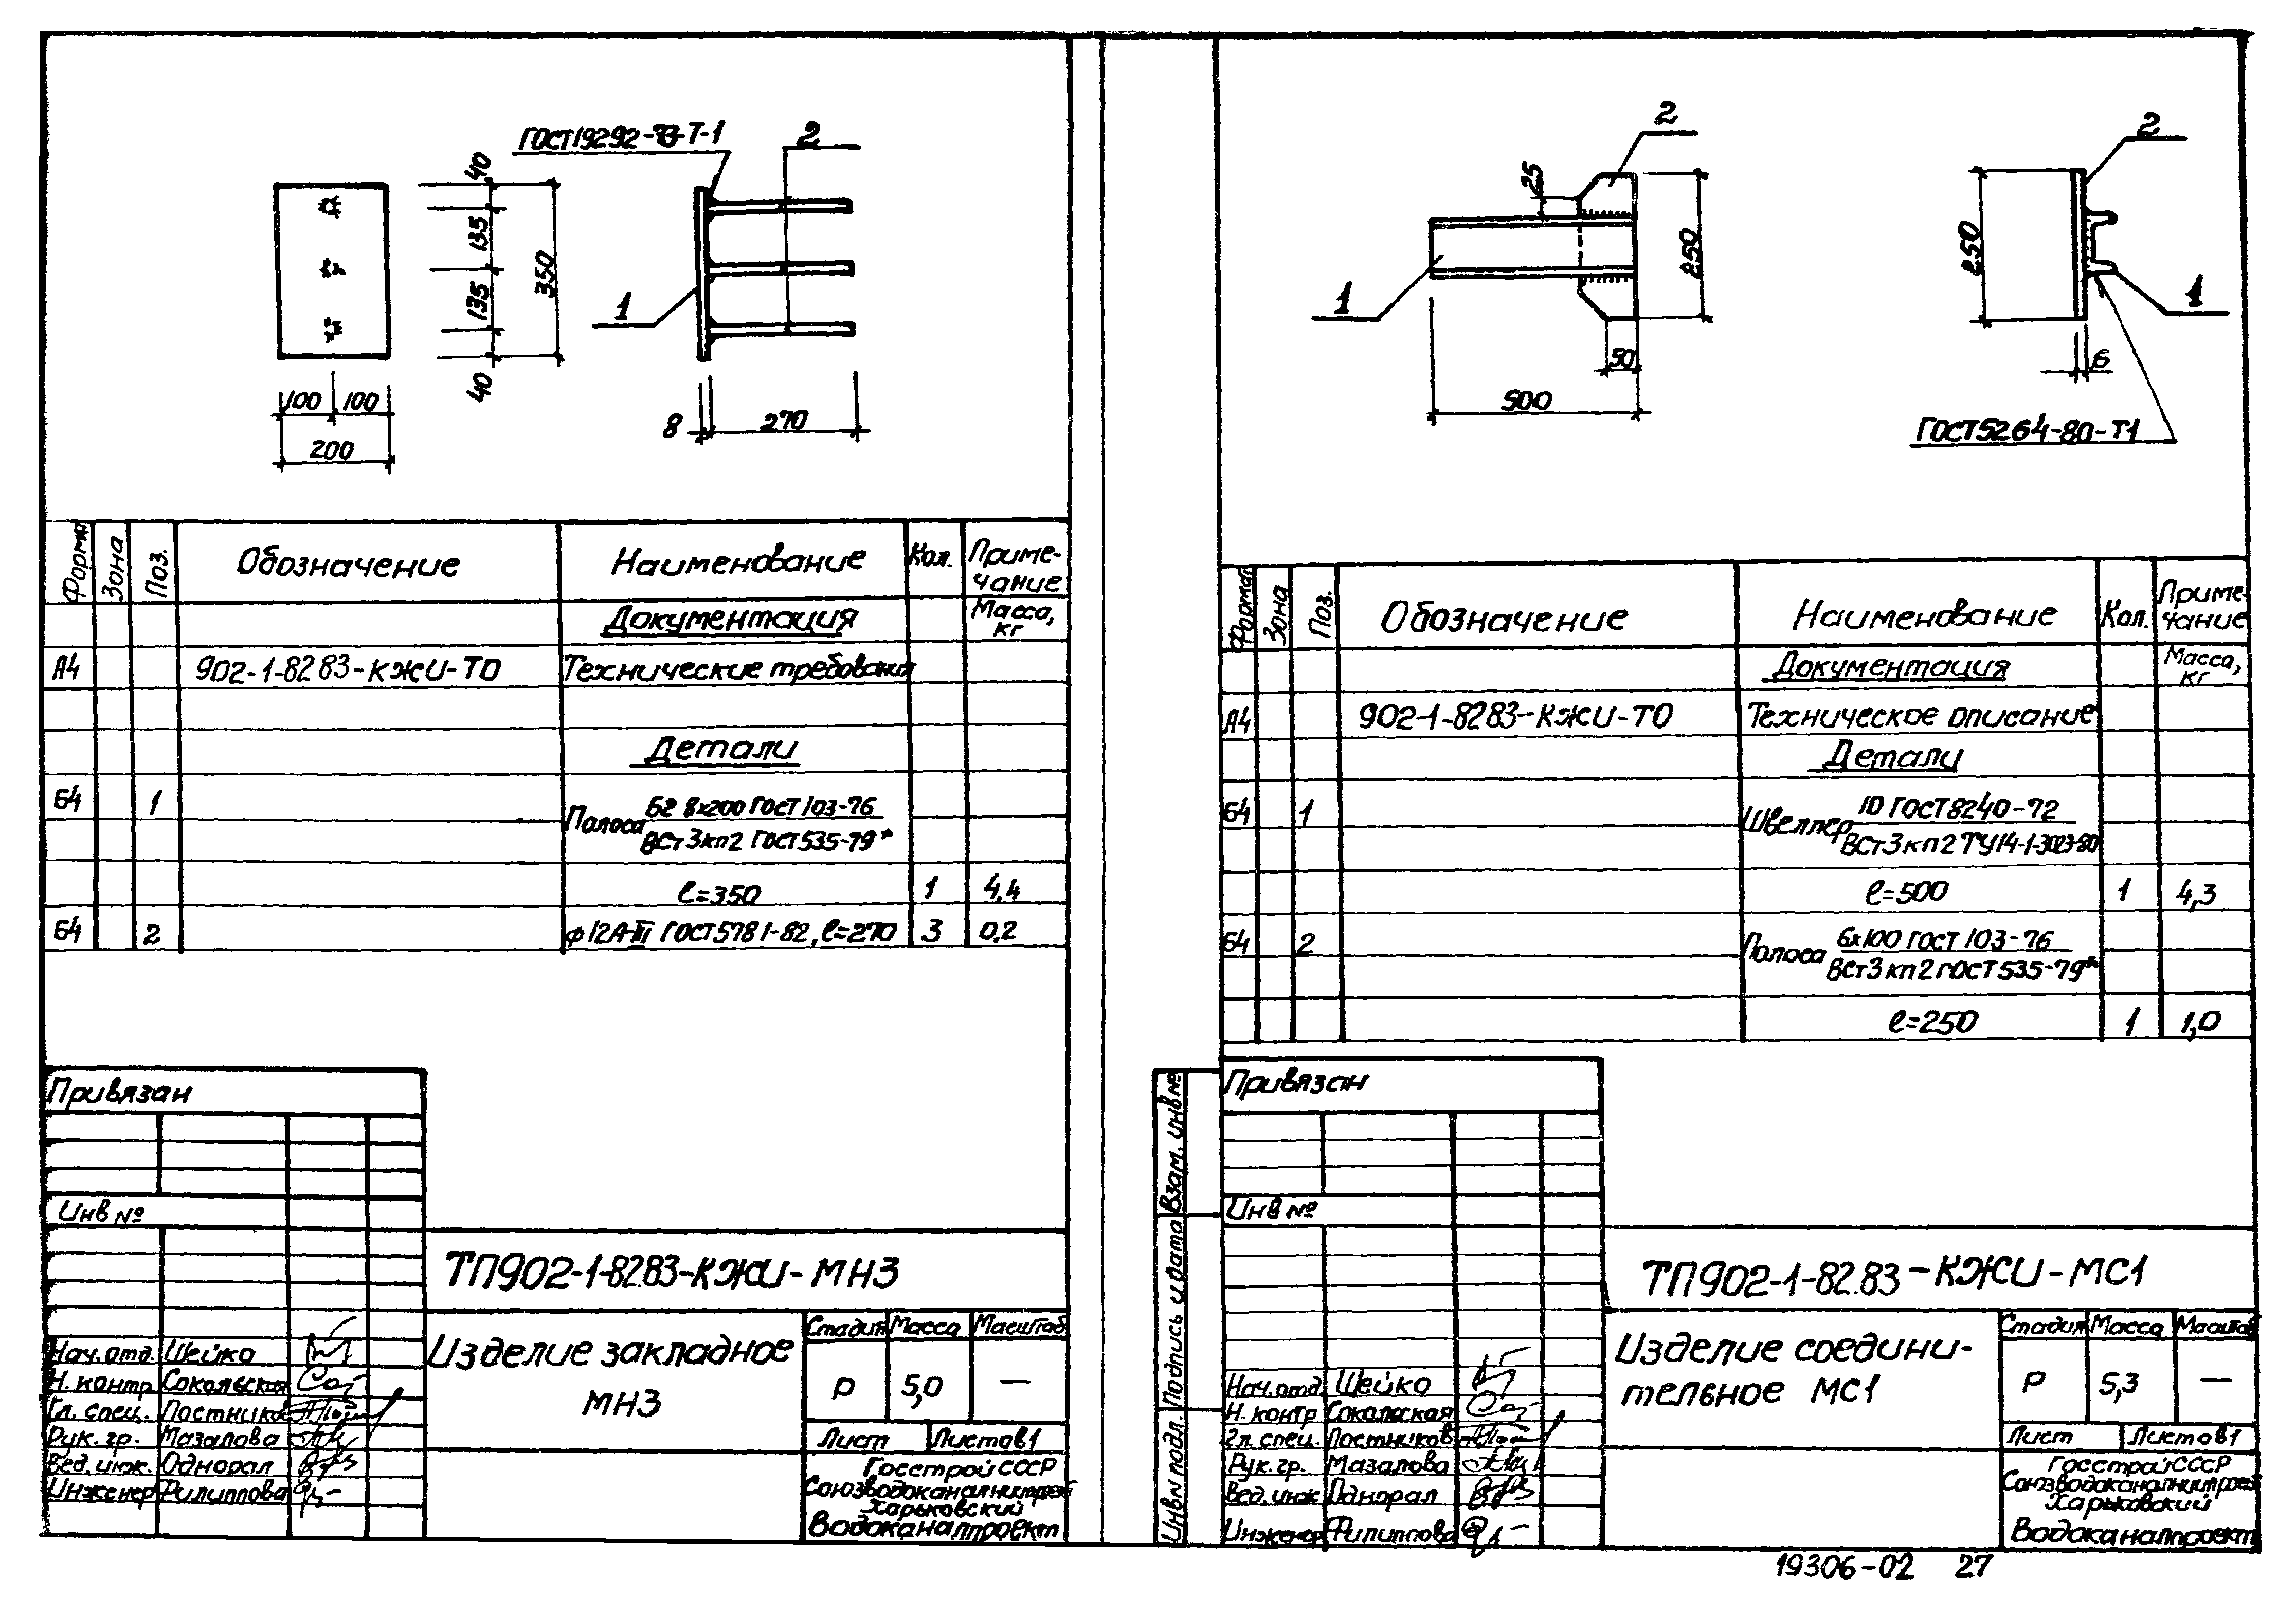 ГОСТ19292-73-Т-1
2
40
135
135
40
350
1
100
100
200
8
270
Формат
Зона
Поз.
Обозначение
Наименование
Кол.
Приме-
чание
Документация
Масса,
кг
А4
902-1-82 83-КЖИ-ТО
Технические требования
Детали
Б4
1
Полоса Б2 8х200 ГОСТ 103-76
ВСт3кп2 ГОСТ535-79*
ℓ=350
1
4,4
Б4
2
ф12А-III ГОСТ5781-82, ℓ=270
3
0,2
Привязан
Инв №
ТП902-1-82.83-КЖИ-МН3
Изделие закладное
МН3
Стадия
Масса
Масштаб
Р
5,0
—
Лист
Листов1
Госстрой СССР
Союзводоканалниипроект
Харьковский
Водоканалпроект
Нач.отд.
Шейко
Н. контр.
Сокольская
Гл. спец.
Постников
Рук. гр.
Мазалова
Вед. инж.
Однорал
Инженер
Филиппова
2
25
250
1
50
500
2
250
1
6
ГОСТ5264-80-Т1
Формат
Зона
Поз.
Обозначение
Наименование
Кол.
Приме-
чание
Документация
Масса,
кг
А4
902-1-82 83-КЖИ-ТО
Техническое описание
Детали
Б4
1
Швеллер 10 ГОСТ8240-72
ВСт3кп2 ТУ14-1-3023-80
ℓ=500
1
4,3
Б4
2
Полоса 6х100 ГОСТ 103-76
ВСт3кп2 ГОСТ535-79*
ℓ=250
1
1,0
Привязан
Инв №
Взам. инв №
Подпись и дата
Инв N подл.
ТП902-1-82.83-КЖИ-МС1
Изделие соедини-
тельное МС1
Стадия
Масса
Масштаб
Р
5,3
—
Лист
Листов1
Госстрой СССР
Союзводоканалниипроект
Харьковский
Водоканалпроект
Нач.отд.
Шейко
Н. контр
Сокольская
Гл. спец.
Постников
Рук. гр.
Мазалова
Вед. инж
Однорал
Инженер
Филиппова
19306-02 27